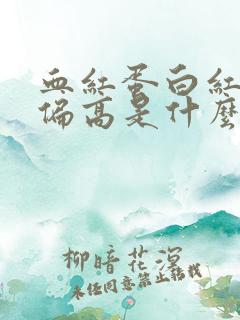 血紅蛋白紅
偏高是什麼
柳暗花溟
未经同意禁止转载